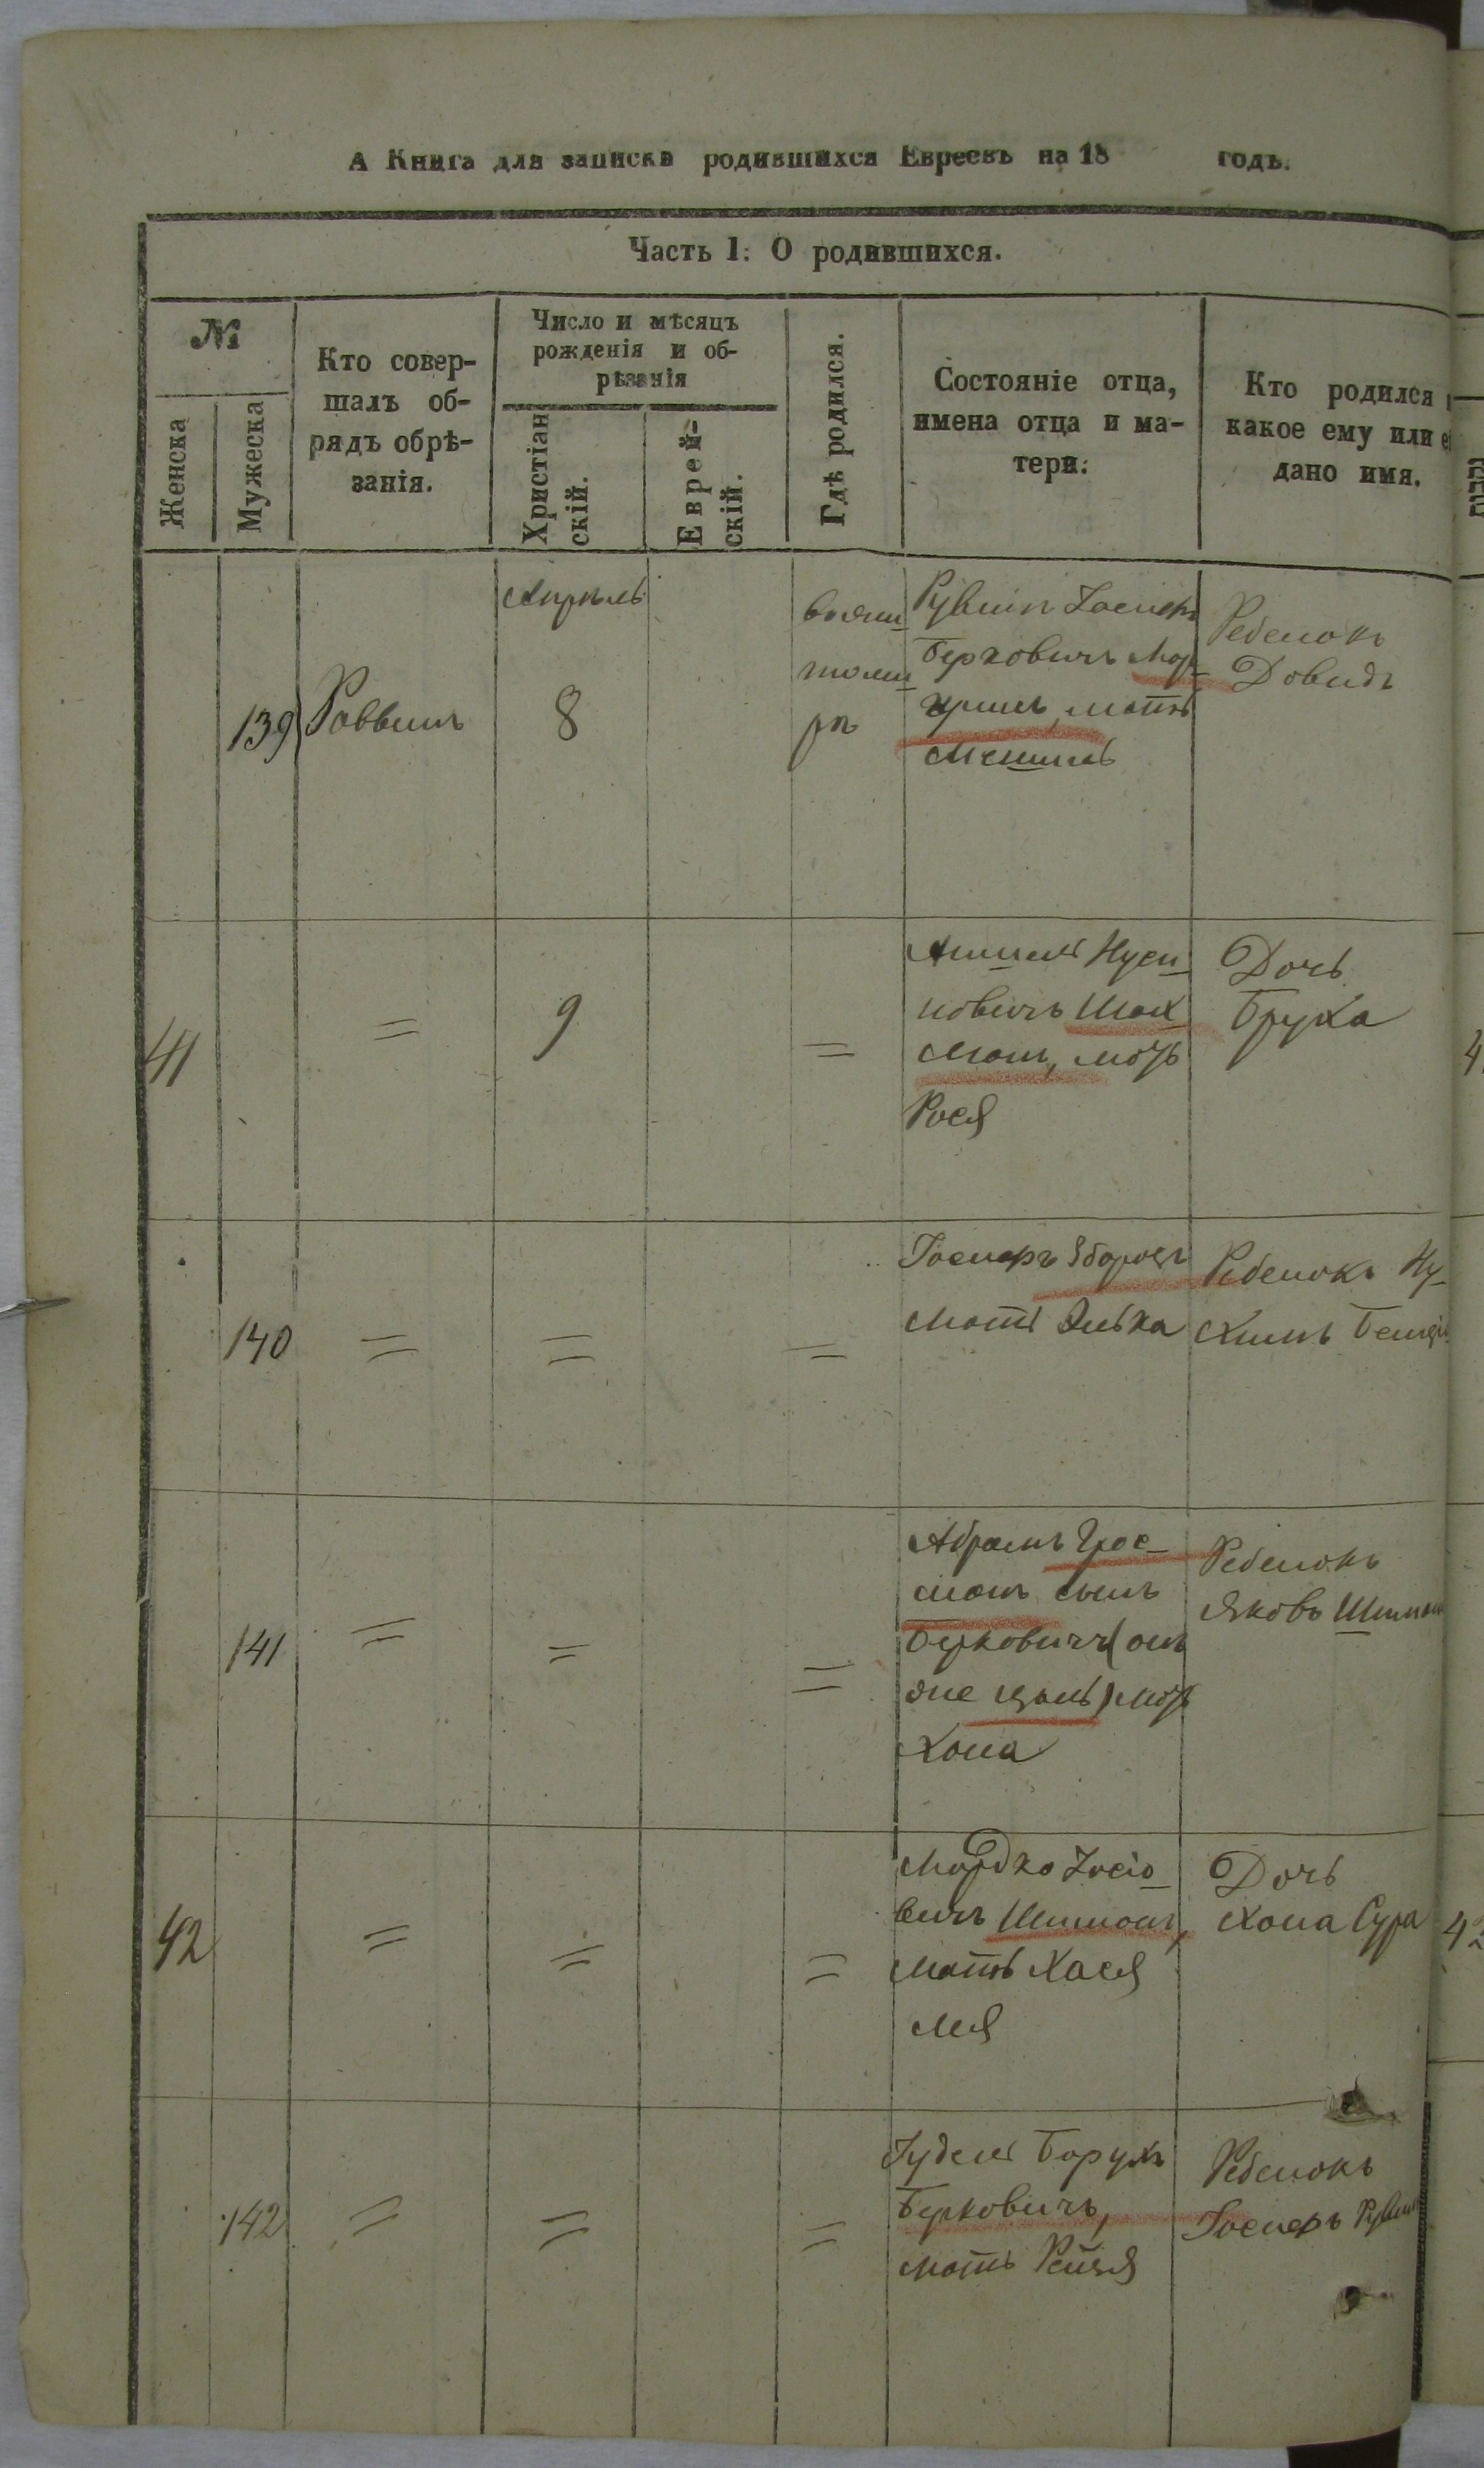 А Книга для записки родившихся Евреевъ на 18 годъ.
Часть I: О родившихся.
№
Женска
Мужеска
Кто совер-
шалъ об-
рядъ обрѣ-
занія.
Число и мѣсяцъ
рожденія и об-
рѣзанія
Христіан
скій.
Еврей-
скій.
Гдѣ родился.
Состояніе отца,
имена отца и ма-
тери.
Кто родился
какое ему или е
дано имя.
139
Раввинъ
Апрѣль
8
въ жи
томи
рѣ
Рувинъ Іосифъ
Берковичъ
мать
Ребенокъ
Довидъ
41
=
9
=
Нуси
новичъ Шах
манъ, мать
Рося
Дочь
Бруха
140
=
=
=
Іосифъ
Мать Элька
Ребенокъ Ну-
химъ
141
=
=
=
Абрамъ Грос-
манъ сынъ
Берковича (онъ
же мать
Хана
Ребенокъ
Яковъ
42
=
=
=
Мордко Іосіо
вичъ
мать Хася
Дочь
Хана Сура
142
=
=
=
Іудель Борухъ
Берковичъ,
мать Рейзя
Ребенокъ
Іосифъ Рувин